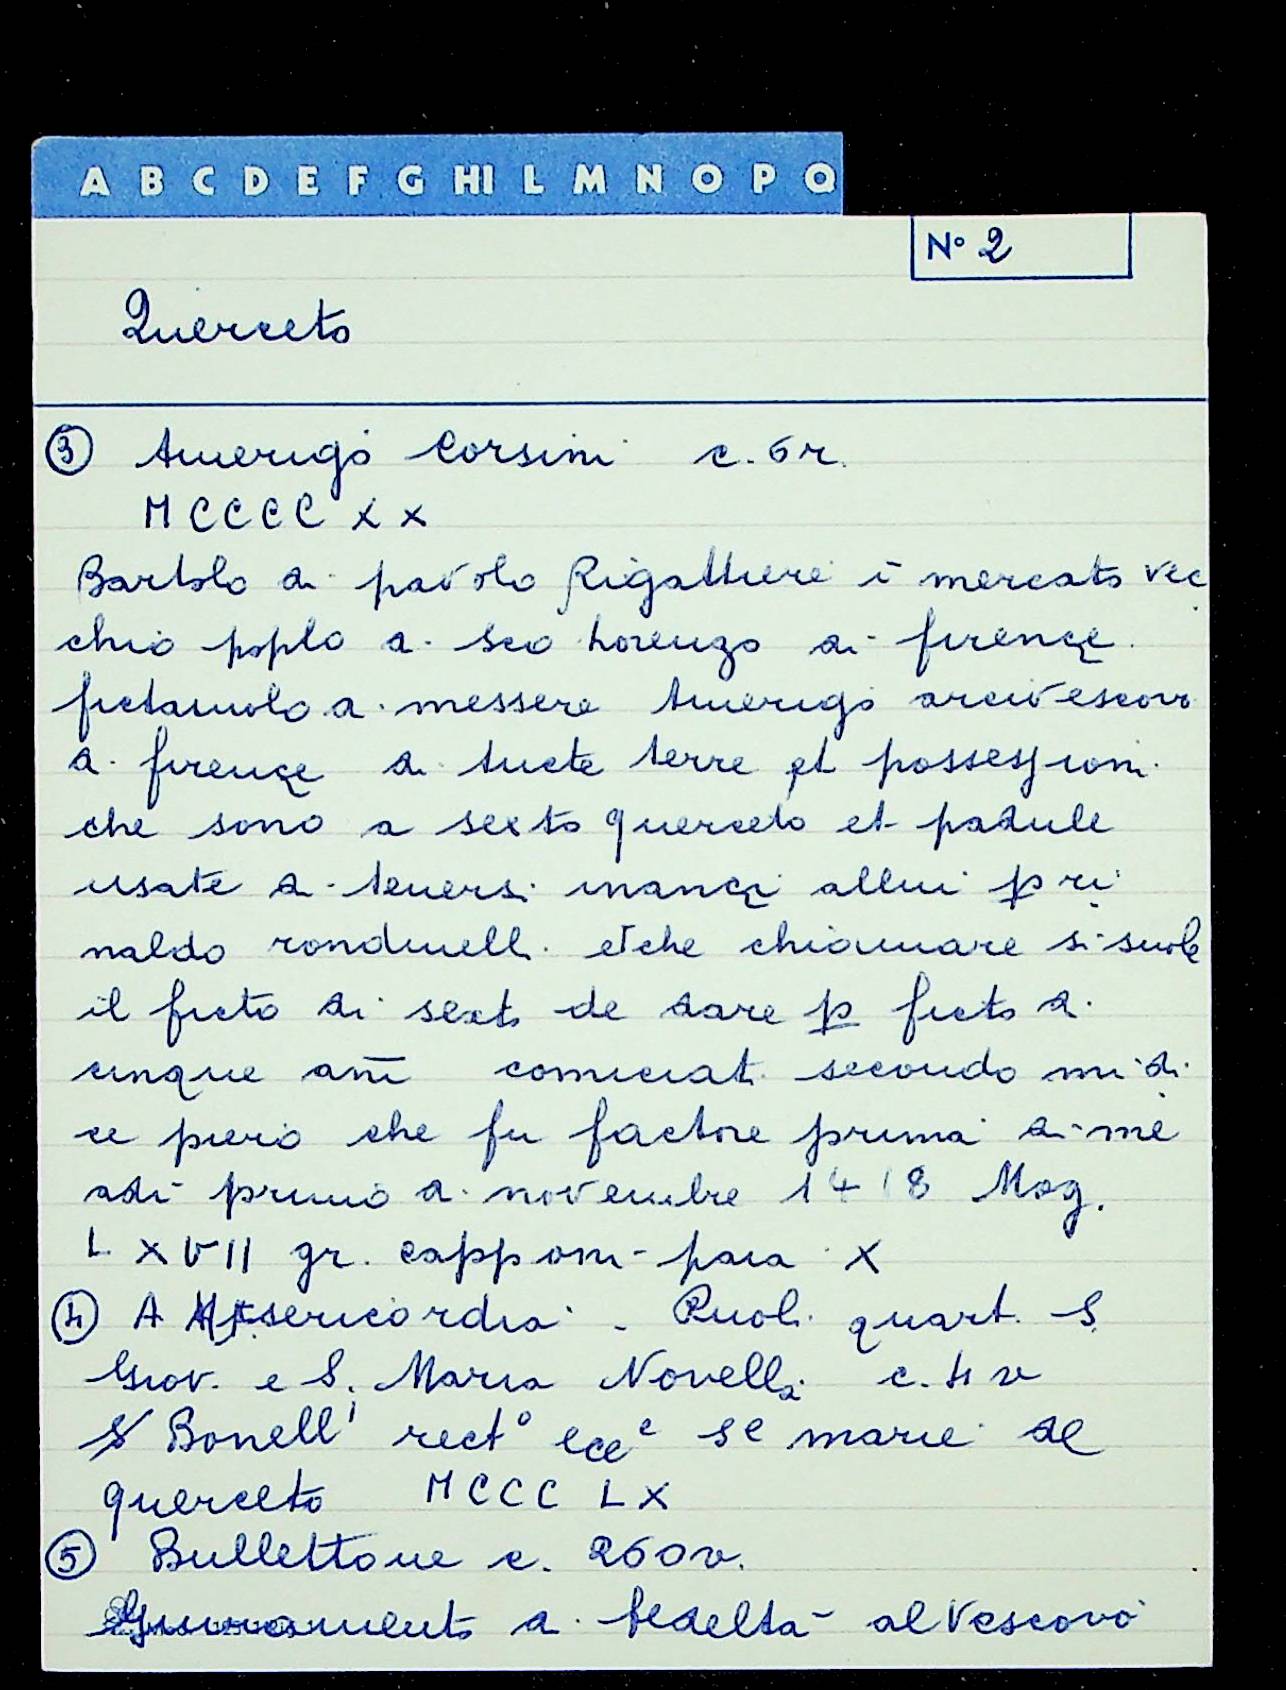 A B C D E F G HI L M N O P Q
N° 2
Querceto
③ Amerigo Corsini c. 6 r.
MCCCC XX
Bartolo di pavolo Rigattiere ī mercato vec
chio poplo di sco Lorenzo di firençe.
fictaiuolo di messere Amerigo arcivescovo
di firençe di tucte terre et possessioni
che sono a sexto querceto et padule
usate di tenersi inançi allui p ri
naldo rondinelli et che chiamare si suole
il ficto di sexto de dare p ficto di
cinque anī cominciati secondo mi di
ce piero che fu factore prima di me
adi primo di novembre 1418 Mog.
LXVII gr. capponi paia X
④ A Misericordia. Ruoli quart. S.
Giov. e S. Maria Novella c. 4 v
S Bonelli rect° ecce se marie de
querceto MCCC LX
⑤ Bullettone c. 260 v.
Giuramento di fedeltà al Vescovo